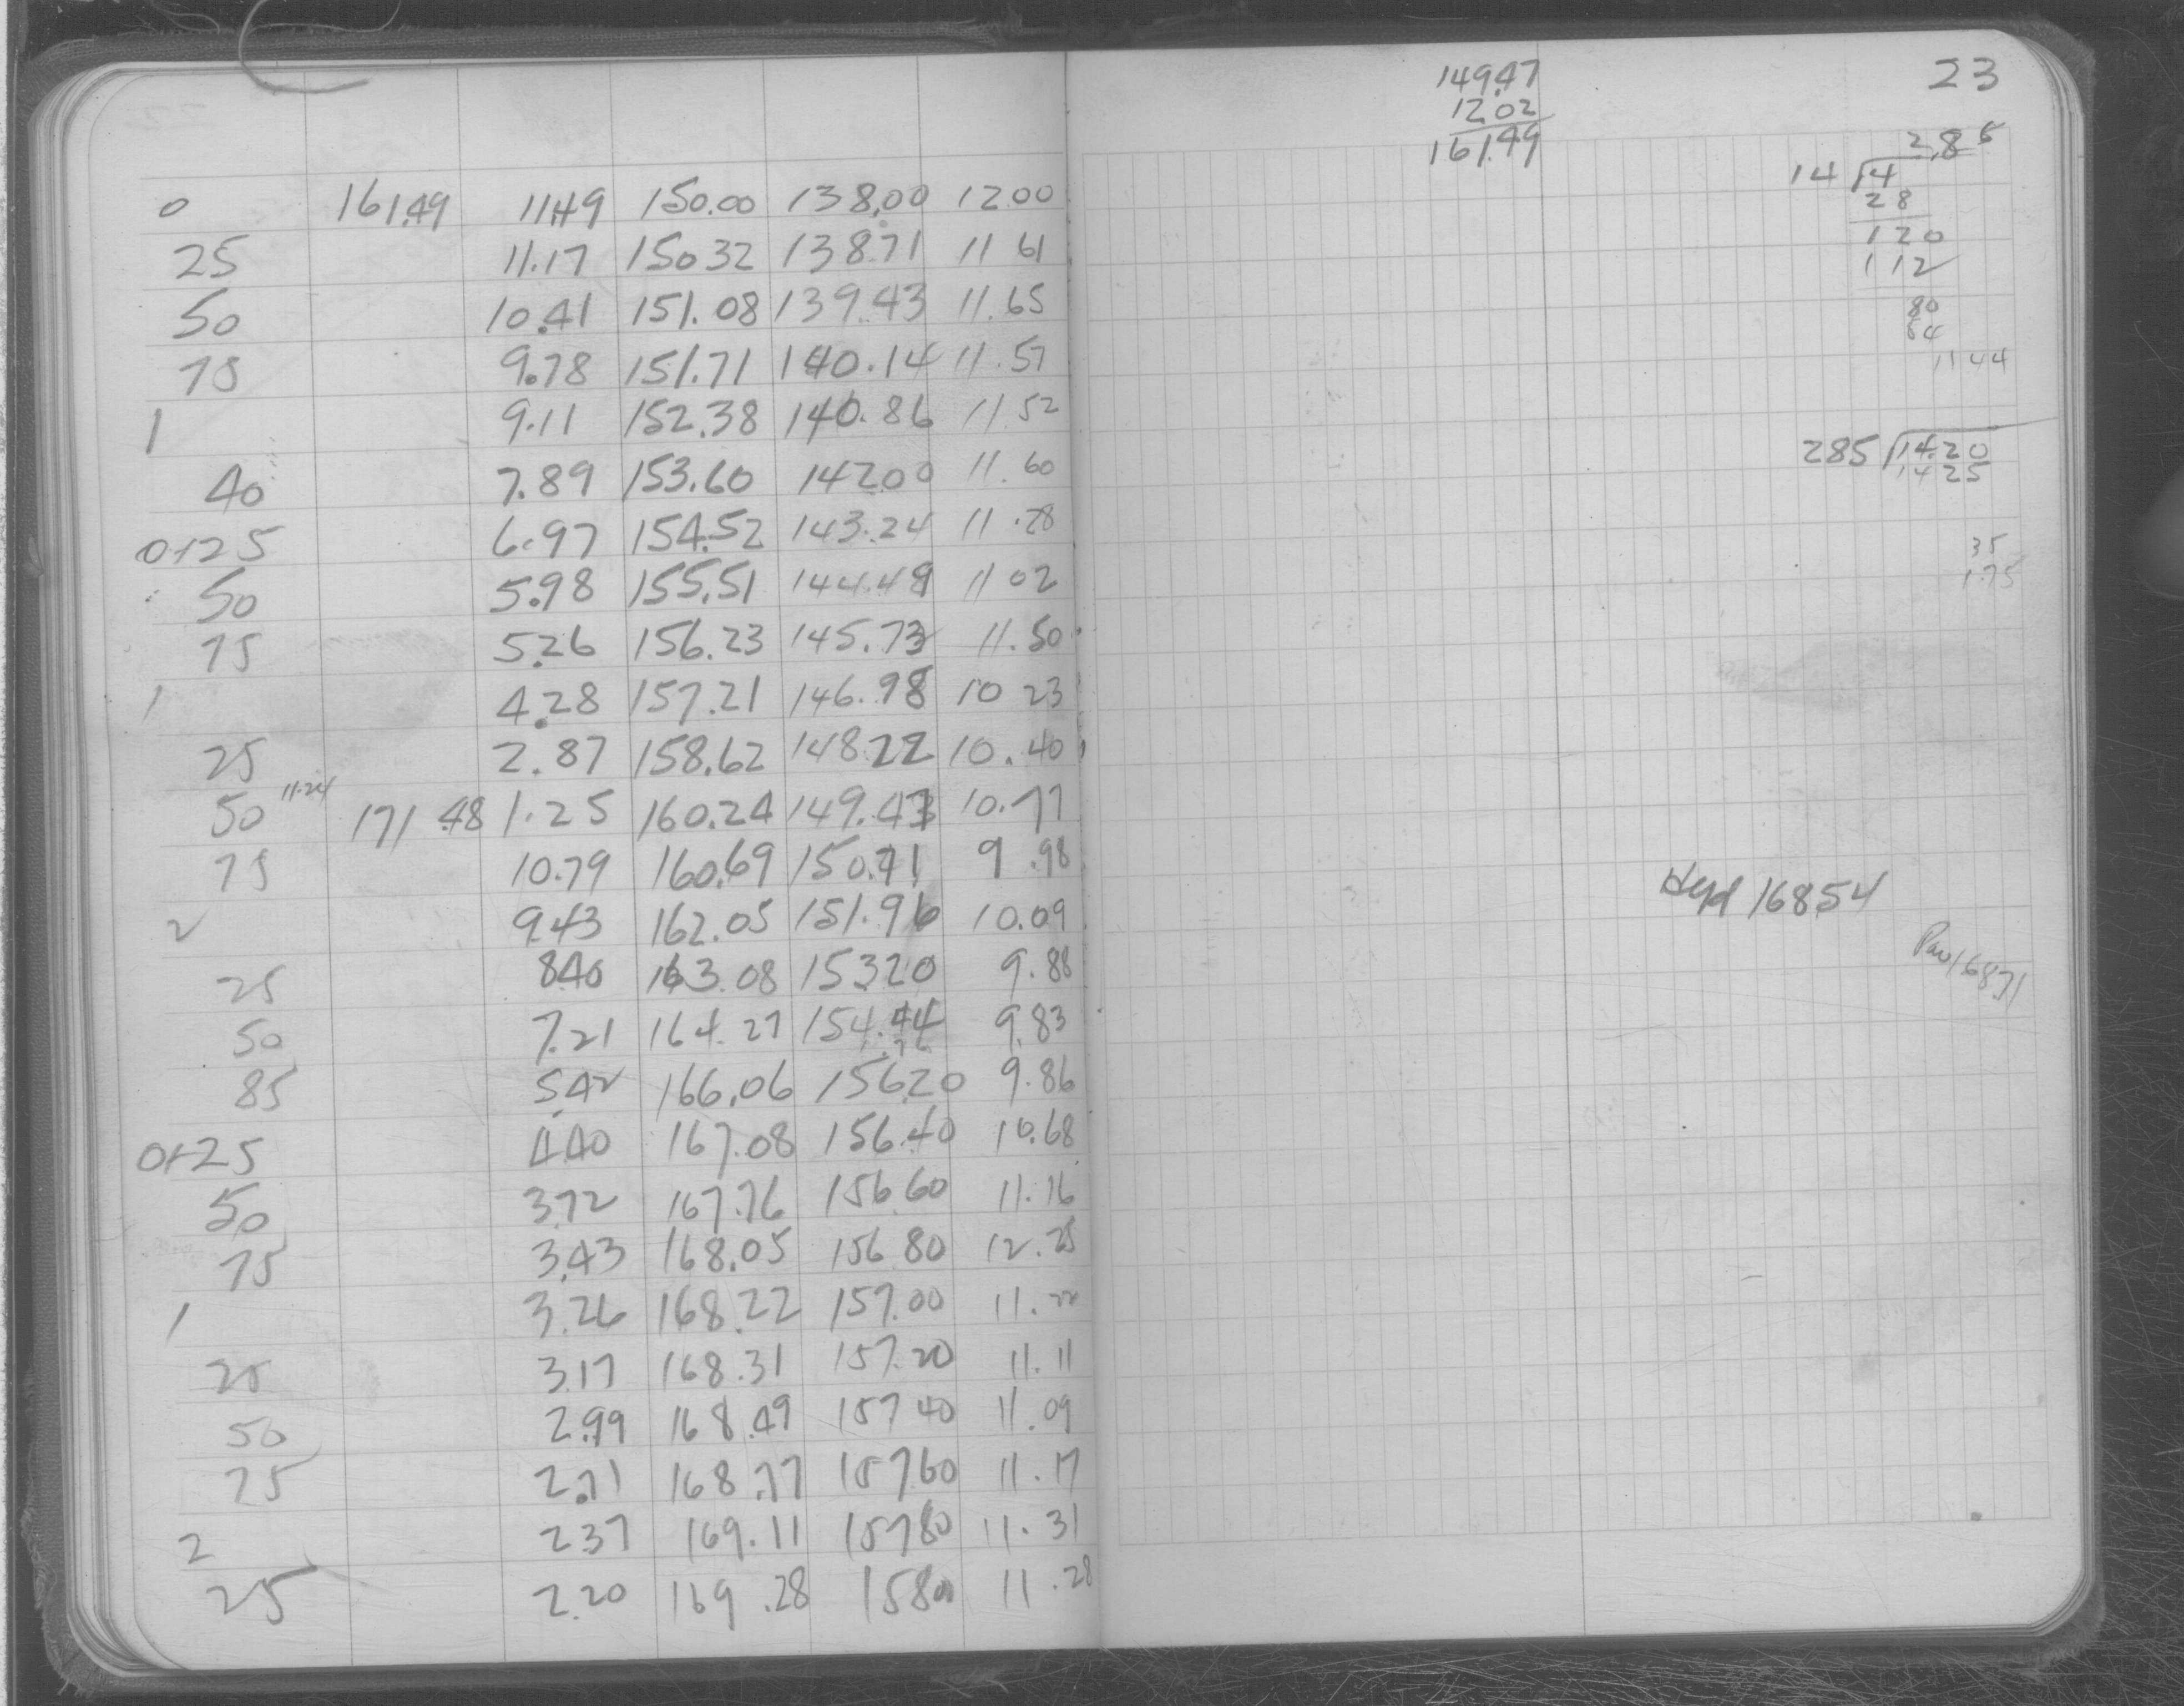 0 161.49 11.49 150.00 138.00 12.00
25 11.17 150.32 138.71 11 61
50 10.41 151.08 139.43 11.65
75 9.78 151.71 140.14 11.57
1 9.11 152.38 140.86 11 52
40 7.89 153.60 142.00 11.60
0+25 6.97 154.52 143.24 11.28
50 5.98 155.51 144.49 11 02
75 5.26 156.23 145.73 11.50
1 4.28 157.21 146.98 10 23
25 2.87 158.62 148 22 10.40
11.24
50 171.48 1.25 160.24 149.47 10.77
75 10.79 160.69 150.71 9.98
2 9.43 162.05 151.96 10.09
25 8.40 163.08 153.20 9.88
50 7.21 164.27 154.44 9.83
85 5.42 166.06 156.20 9.86
0+25 4.40 167.08 156.40 10.68
50 3.72 167.76 156.60 11.16
75 3.43 168.05 156 80 12.25
1 3.26 168.22 157.00 11.22
25 3.17 168.31 157.20 11.11
50 2.99 168.49 157 40 11.09
75 2.71 168.77 157.60 11.17
2 2.37 169.11 157 80 11.31
25 2.20 169.28 158.00 11.28
149.47
12.02
161.49
23
2.85
14 4
28
120
112
80
64
11 44
285 14.20
14 25
35
1.75
Hyd 168.54
168.71